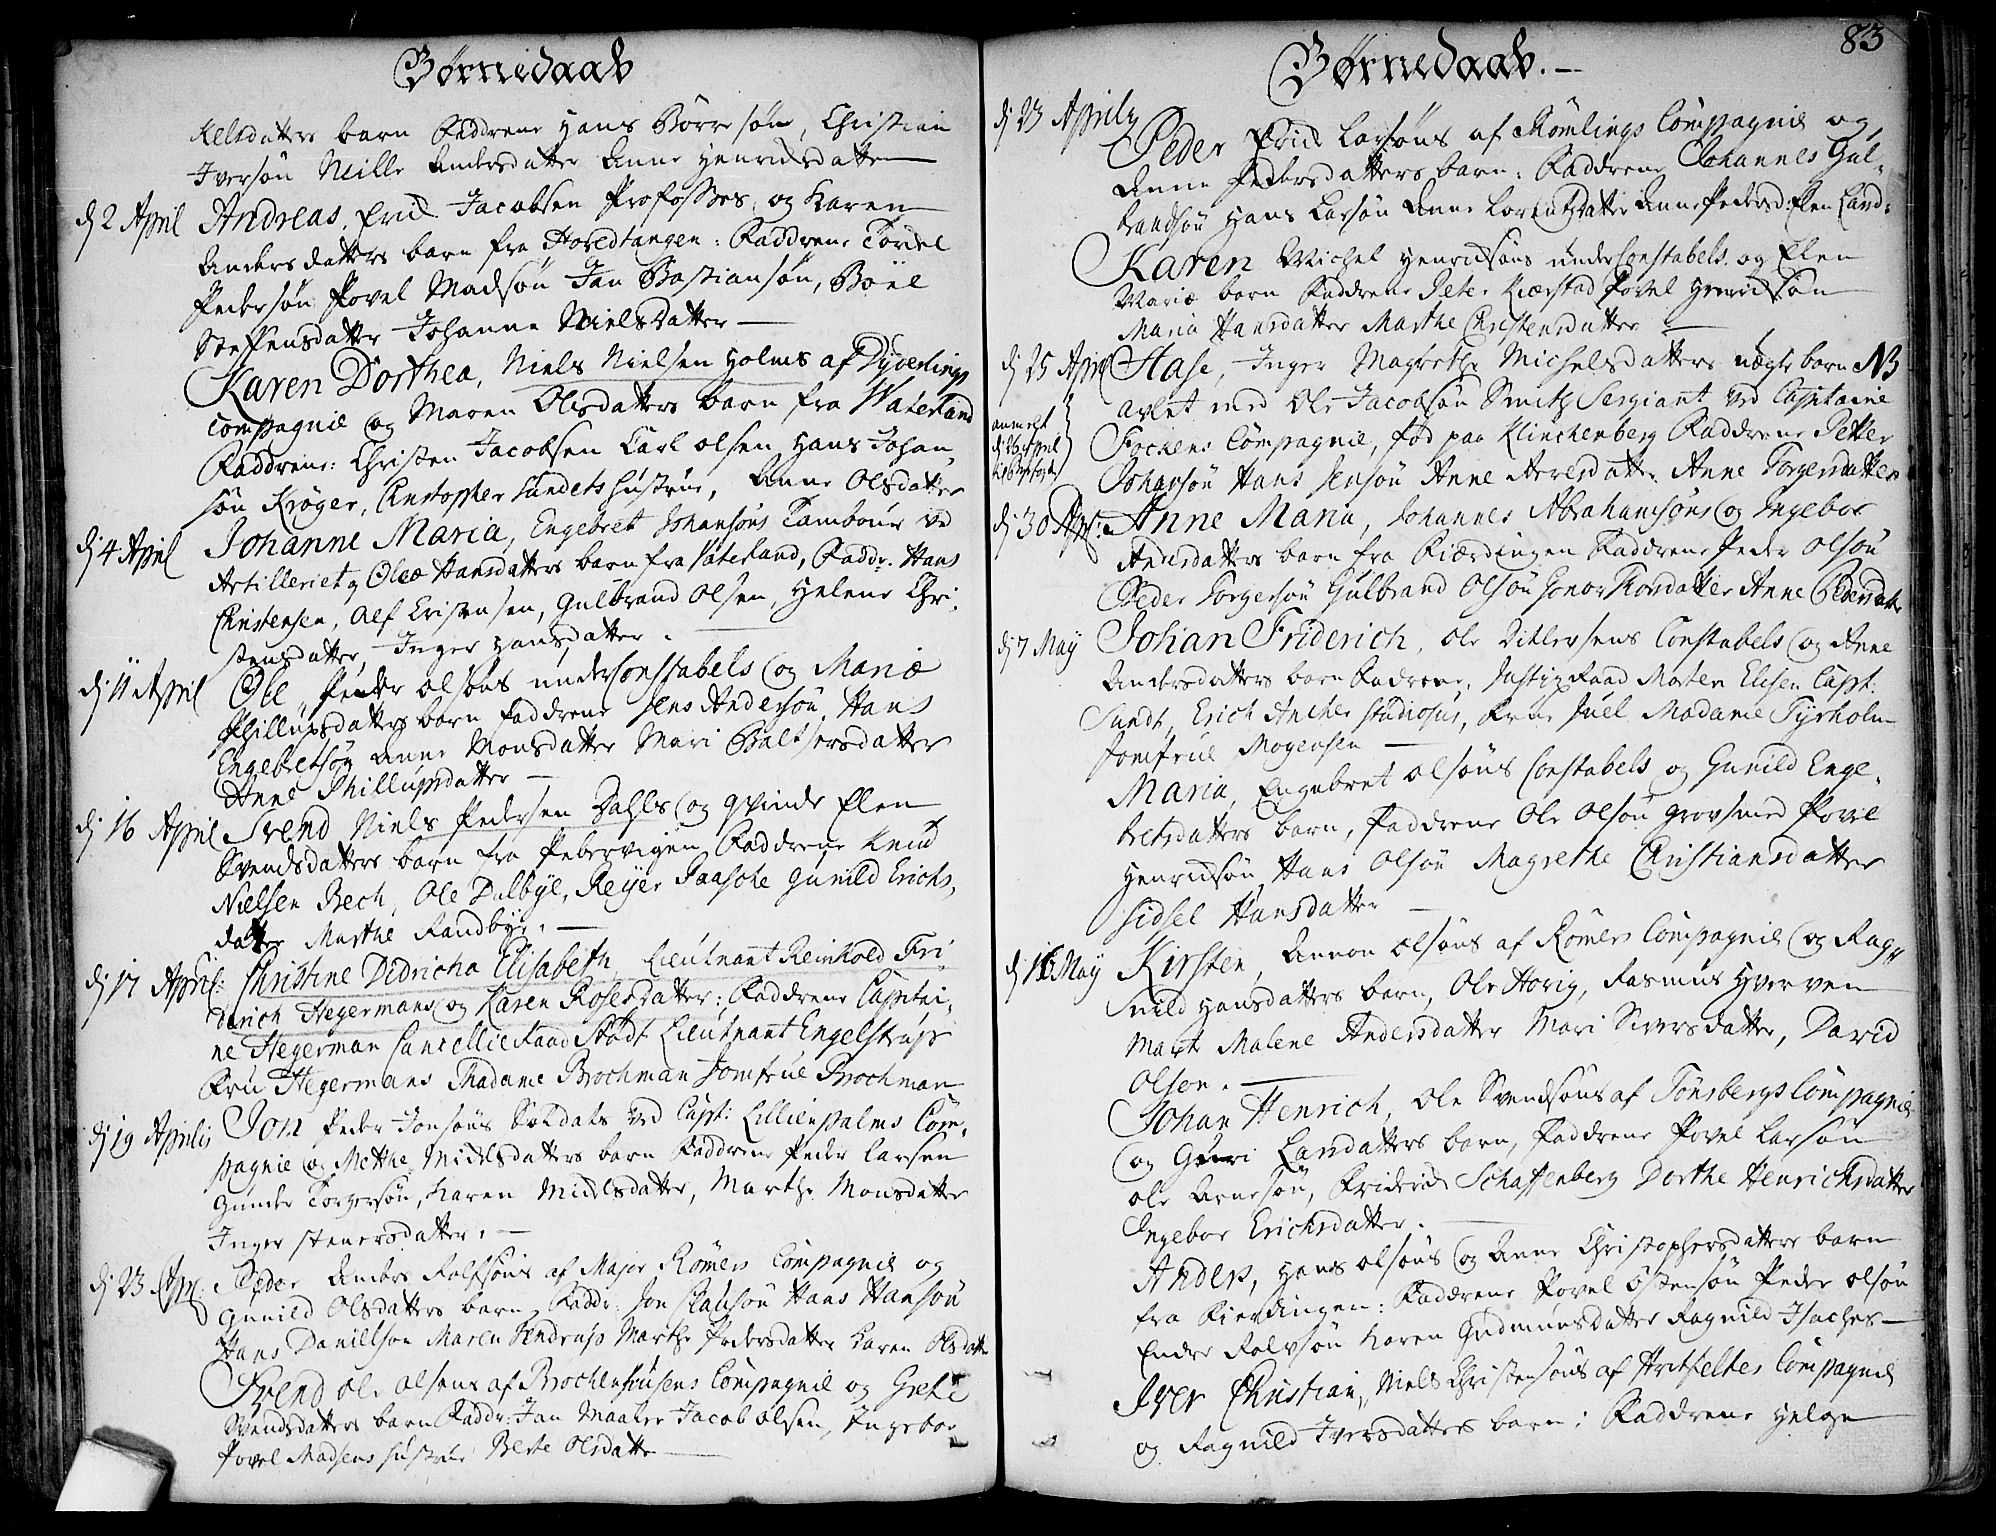 Børnedaab
Kelsdatters barn Faddrene Hans Börresön, Christian
Iversön Neille Andersdatter Anne Henrichsdatter
dj 2 April Andreas, Erich Jacobsen Profosses, og Karen
Anders datters barn fra Hovedtangen: Faddrene Torel
Pedersön Povel Madsön Jan Bastiansön, Böel
Steffensdatter Johanne Nielsdatter
Karen Dorthea, Niels Nielsen Holms af Dyverlings
Compagnie og Maren Olsdatters barn fra Waterland
Faddrene: Christen Jacobsen Carl olsen Hans Johan-
sön Kröger, Christopher Sundets Hustrue, Anne Olsdatter
dj 4 April Johanne Maria, Engebret Johansöns Tambour ved
Artilleriet og Oleæ Hansdatters barn fra Vaterland, Faddr. Hans
Christensen, Alf Cristensen, Gulbrand Olsen, Helene Chri-
stensdatter, Inger Hansdatter.
dj 11 April Ole, Peder olsöns underConstabels og Mariæ
Phillupsdatters barn faddrene Jens Andersön, Hans
Engebretsön Anne Monsdatter Mari Baltsersdatter
Anne Phillupsdatter
dj 16 April Svend Niels Pedersen Dahls og Qvinde Elen
Svendsdatters barn fra Pebervigen Faddrene Knud
Nielsen Bech, Ole Dalbye, Reyer Paasche Gunild Erichs-
datter Marthe Randbye.
dj 17 April: Christine Didricha Elisabeth, Lieutnant Reinhold Fri-
derich Hegermans og Karen Rosesdatter; Faddrene Capitai-
ne Hegerman CancellieRaad Stödt Lieutnant Engelstrup
Fru Hegermans Madame Brochman Jomfrue Brochman
dj 19 Aprilis Jon Peder Jonsöns Soldats ved Capt: Lillienpalms Com-
pagnie og Metthe Michelsdatters barn Faddrene Peder Larsen
Gunder Torgersön, Karen Michelsdatter, Marthe Monsdatter
Inger Stenersdatter.
dj 23 Apr: Peder Anders Rolfsöns af Major Römers Compagnie og
Gunild Olsdatters barn Faddr: Jon Clausön Hans Hansön
Hans Daniellson Maren Tendrup Marthe Pedersdatter Karen Olsdatter
Svend Ole Olsens af Brochenhusens Compagnie og Grete
Svendsdatters barn Faddr: Jan Maaler Jacob Olsen, Ingebor
Povel Madsens Hustrue Berte Olsdatter
Børnedaab.
83
dj 23 Aprily
Peder Erich Larsöns af Römlings Compagnie og
Anne Pedersdatters barn: Faddrene Johannes Gul-
brandsön Hans Larsön Anne Lorentzdatter Anne Pedersd: Elen Land:
Karen Michel Henrichsöns underConstabels og Elen
Mariæ barn Faddrene Peter Kierstad Povel Henrichsön
Maria Hansdatter Marthe Christensdatter
dj 25 April Hase, Inger Magrethe Michelsdatters uægte barn NB
avlet med Ole Jacobsön Smith Sergiant ved Capitaine
anmelt
dj 26 April
Fochens Compagnie, fød paa Klinchenberg Faddrene Petter
Johansön Hans Jensön Anne Arvesdatter Anne Torgersdatter
dj 30 Apr: Anne Maria, Johannes Abrahamsöns og Ingebor
Andersdatters barn fra Pierdingen Faddrene Peder Olsön
Peder Torgersön Gulbrand Olsön Gonor Thordatter Anne Pedersdatter
dj 7 May Johan Friderich, Ole Ditlevsens Constabels og Anne
Andersdatters barn Fadrene, Justiz Raad Morten Elisen Capt:
Sundt, Erich Ancher Studiosus, Frue Juel Madame Tyrholm
Jomfrue Mogensen
Maria, Engebret olsöns Constabels og Gunild Enge-
bretsdatters barn, Faddrene Ole Olsön Grovsmed Povel
Henrichsön Hans Olsön Magrethe Christiansdatter
Sidsel Hansdatter
dj 16 May Kirsten, Amon olsöns af Römers Compagnie og Rag-
nild Hansdatters barn, Ole Hovig, Rasmus Hverven
Mart Malene Andersdatter Mari Siversdatter, David
Olsen.
Johan Henrich, Ole Svendsöns af Tönsbergs Compagnie
og Guri Larsdatters barn, Faddrene Povel Larsön
Ole Arnesön, Friderich Schaffenberg Dorthe Henrichsdatter
Ingebor Erichsdatter.
Anders, Hans olsöns og Anne Christophersdatters barn
fra Pierdingen: Faddrene Povel Östensön Peder olsön
Endre Rolvsön Karen Gudmunsdatter Ragnild Isaches
Iver Christian, Niels Christensöns af Hvitfeltes Compagnie
og Ragnild Iversdatters barn: Faddrene Helge